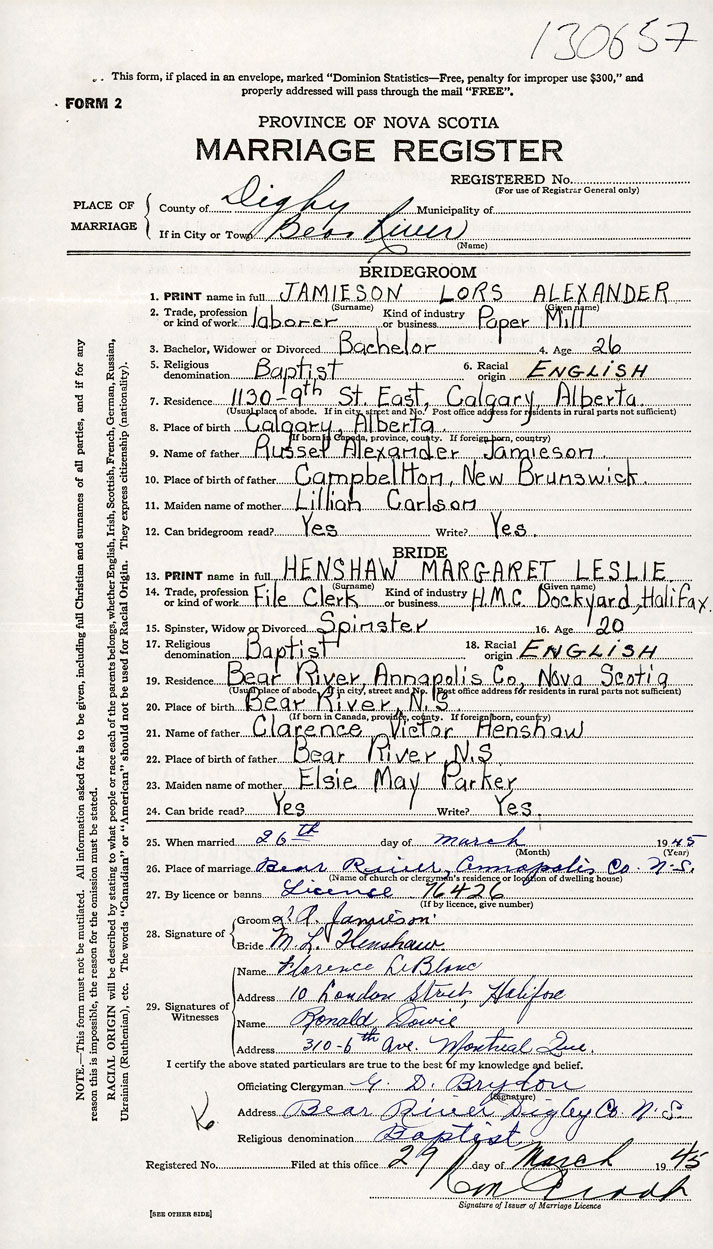 130657
This form, if placed in an envelope, marked "Dominion Statistics—Free, penalty for improper use $300," and
properly addressed will pass through the mail "FREE".
FORM 2
PROVINCE OF NOVA SCOTIA
MARRIAGE REGISTER
REGISTERED No.
(For use of Registrar General only)
PLACE OF MARRIAGE
County of Digby Municipality of
If in City or Town Bear River
(Name)
BRIDEGROOM
1. PRINT name in full JAMIESON LORS ALEXANDER
(Surname) (Given name)
2. Trade, profession or kind of work laborer Kind of industry or business Paper Mill
3. Bachelor, Widower or Divorced Bachelor 4. Age 26
5. Religious denomination Baptist 6. Racial origin ENGLISH
7. Residence 1130-9th St. East, Calgary, Alberta.
(Usual place of abode. If in city, street and No. Post office address for residents in rural parts not sufficient)
8. Place of birth Calgary, Alberta.
(If born in Canada, province, county. If foreign born, country)
9. Name of father Russel Alexander Jamieson
10. Place of birth of father Campbellton, New Brunswick.
11. Maiden name of mother Lillian Carlson
12. Can bridegroom read? Yes Write? Yes.
BRIDE
13. PRINT name in full HENSHAW MARGARET LESLIE
(Surname) (Given name)
14. Trade, profession or kind of work File Clerk Kind of industry or business H.M.C. Dockyard, Halifax.
15. Spinster, Widow or Divorced Spinster 16. Age 20
17. Religious denomination Baptist 18. Racial origin ENGLISH
19. Residence Bear River, Annapolis Co, Nova Scotia
(Usual place of abode. If in city, street and No. Post office address for residents in rural parts not sufficient)
20. Place of birth Bear River, N.S.
(If born in Canada, province, county. If foreign born, country)
21. Name of father Clarence Victor Henshaw
22. Place of birth of father Bear River, N.S.
23. Maiden name of mother Elsie May Parker
24. Can bride read? Yes Write? Yes.
25. When married 26th day of March 1945
(Month) (Year)
26. Place of marriage Bear River, Annapolis Co. N.S.
(Name of church or clergyman's residence or location of dwelling house)
27. By licence or banns Licence 76426
(If by licence, give number)
28. Signature of
Groom L A. Jamieson
Bride M. L. Henshaw.
29. Signatures of Witnesses
Name Florence LeBlanc
Address 10 London Street, Halifax
Name Ronald Dowie
Address 310-6th Ave. Montreal Que.
I certify the above stated particulars are true to the best of my knowledge and belief.
Officiating Clergyman G. D. Brydon
(Signature)
Address Bear River Digby Co. N.S.
Religious denomination Baptist
Registered No. Filed at this office 29 day of March 1945
Signature of Issuer of Marriage Licence
[SEE OTHER SIDE]
NOTE.—This form must not be mutilated. All information asked for is to be given, including full Christian and surnames of all parties, and if for any
reason this is impossible, the reason for the omission must be stated.
RACIAL ORIGIN will be described by stating to what people or race each of the parents belongs, whether English, Irish, Scottish, French, German, Russian,
Ukrainian (Ruthenian), etc. The words "Canadian" or "American" should not be used for Racial Origin. They express citizenship (nationality).